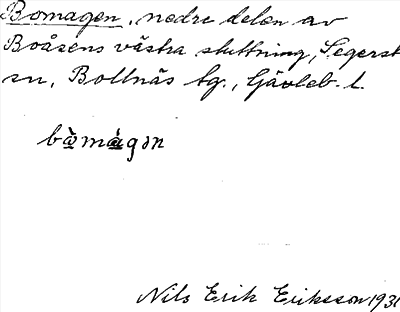 Bomagen, nedre delen av
Boåsens västra sluttning, Segersta
sn, Bollnäs tg., Gävleb. l.
bò̱mà̱gən
Nils Erik Eriksson 1931